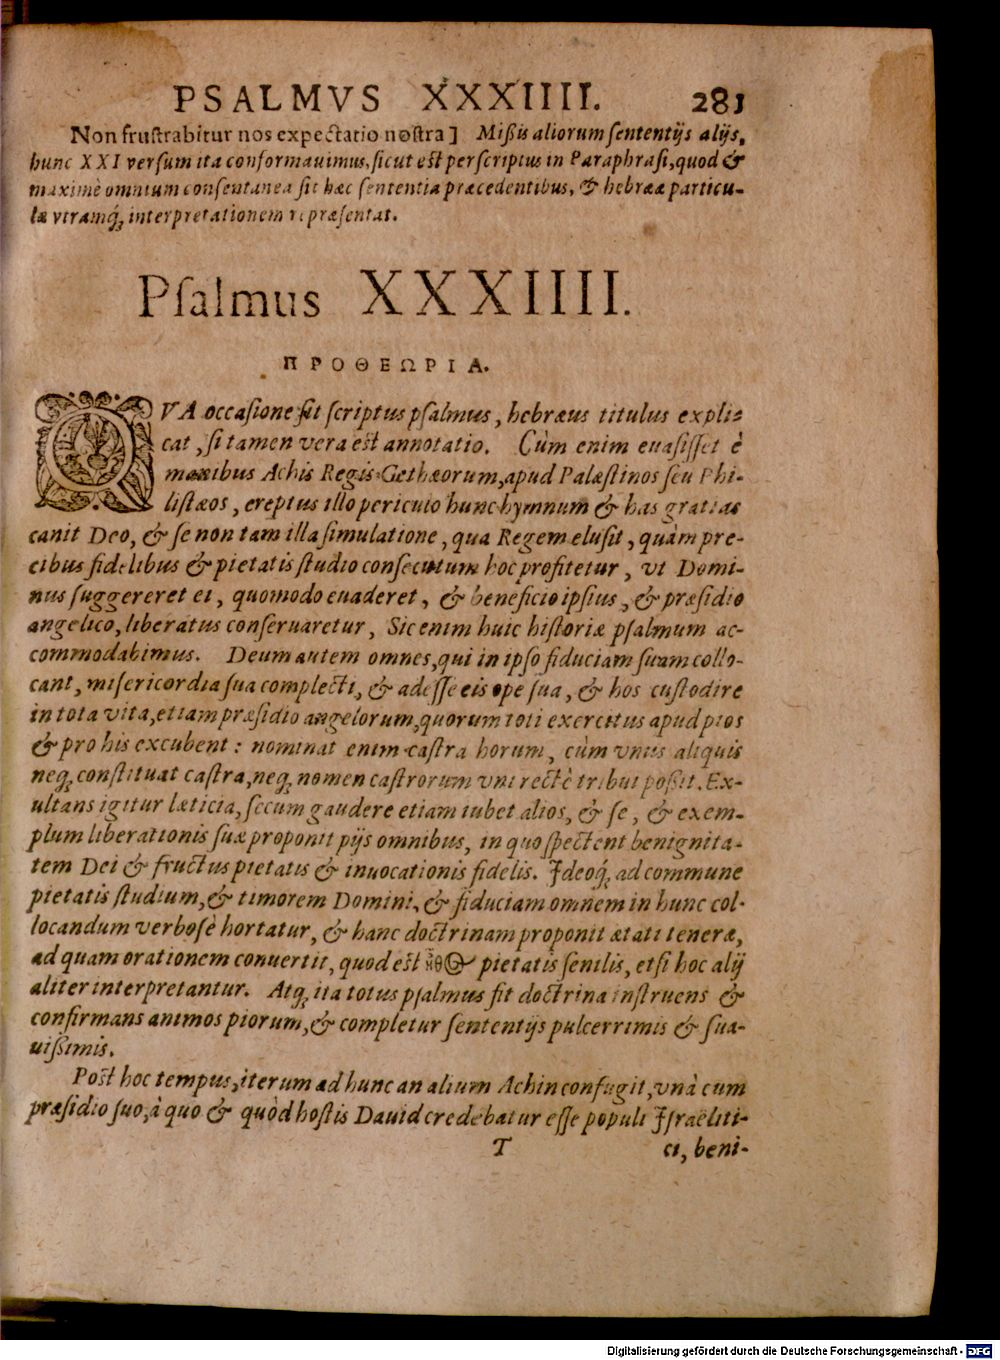 PSALMVS XXXIIII. 281
Non frustrabitur nos expectatio nostra] Mißis aliorum sententijs alijs,
hunc XXI versum ita conformauimus, sicut est perscriptus in Paraphrasi, quod &
maximè omnium consentanea sit hæc sententia præcedentibus, & hebrææ particu-
læ vtramq́ꝫ interpretationem repræsentat.
Psalmus XXXIIII.
ΠΡΟΘΕΩΡΙΑ.
QVA occasione sit scriptus psalmus, hebræus titulus expli-
cat, si tamen vera est annotatio. Cùm enim euasisset è
manibus Achis Regis Gethæorum, apud Palæstinos seu Phi-
listæos, ereptus illo periculo hunc hymnum & has gratias
canit Deo, & se non tam illa simulatione, qua Regem elusit, quàm pre-
cibus fidelibus & pietatis studio consecutum hoc profitetur, vt Domi-
nus suggereret ei, quomodo euaderet, & beneficio ipsius, & præsidio
angelico, liberatus conseruaretur, Sic enim huic historiæ psalmum ac-
commodabimus. Deum autem omnes, qui in ipso fiduciam suam collo-
cant, misericordia sua complecti, & adesse eis ope sua, & hos custodire
in tota vita, etiam præsidio angelorum, quorum toti exercitus apud pios
& pro his excubent: nominat enim castra horum, cùm vnus aliquis
neqꝫ constituat castra, neqꝫ nomen castrorum vni rectè tribui poßit. Ex-
ultans igitur læticia, secum gaudere etiam iubet alios, & se, & exem-
plum liberationis suæ proponit pijs omnibus, in quo spectent benignita-
tem Dei & fructus pietatis & inuocationis fidelis. Ideoq́ꝫ ad commune
pietatis studium, & timorem Domini, & fiduciam omnem in hunc col-
locandum verbosè hortatur, & hanc doctrinam proponit ætati teneræ,
ad quam orationem conuertit, quod est ἦθος pietatis senilis, etsi hoc alij
aliter interpretantur. Atqꝫ ita totus psalmus fit doctrina instruens &
confirmans animos piorum, & completur sententijs pulcerrimis & sua-
uißimis.
Post hoc tempus, iterum ad hunc an alium Achin confugit, vnà cum
præsidio suo, à quo & quòd hostis Dauid credebatur esse populi Israëliti-
T ci, beni-
Digitalisierung gefördert durch die Deutsche Forschungsgemeinschaft - DFG